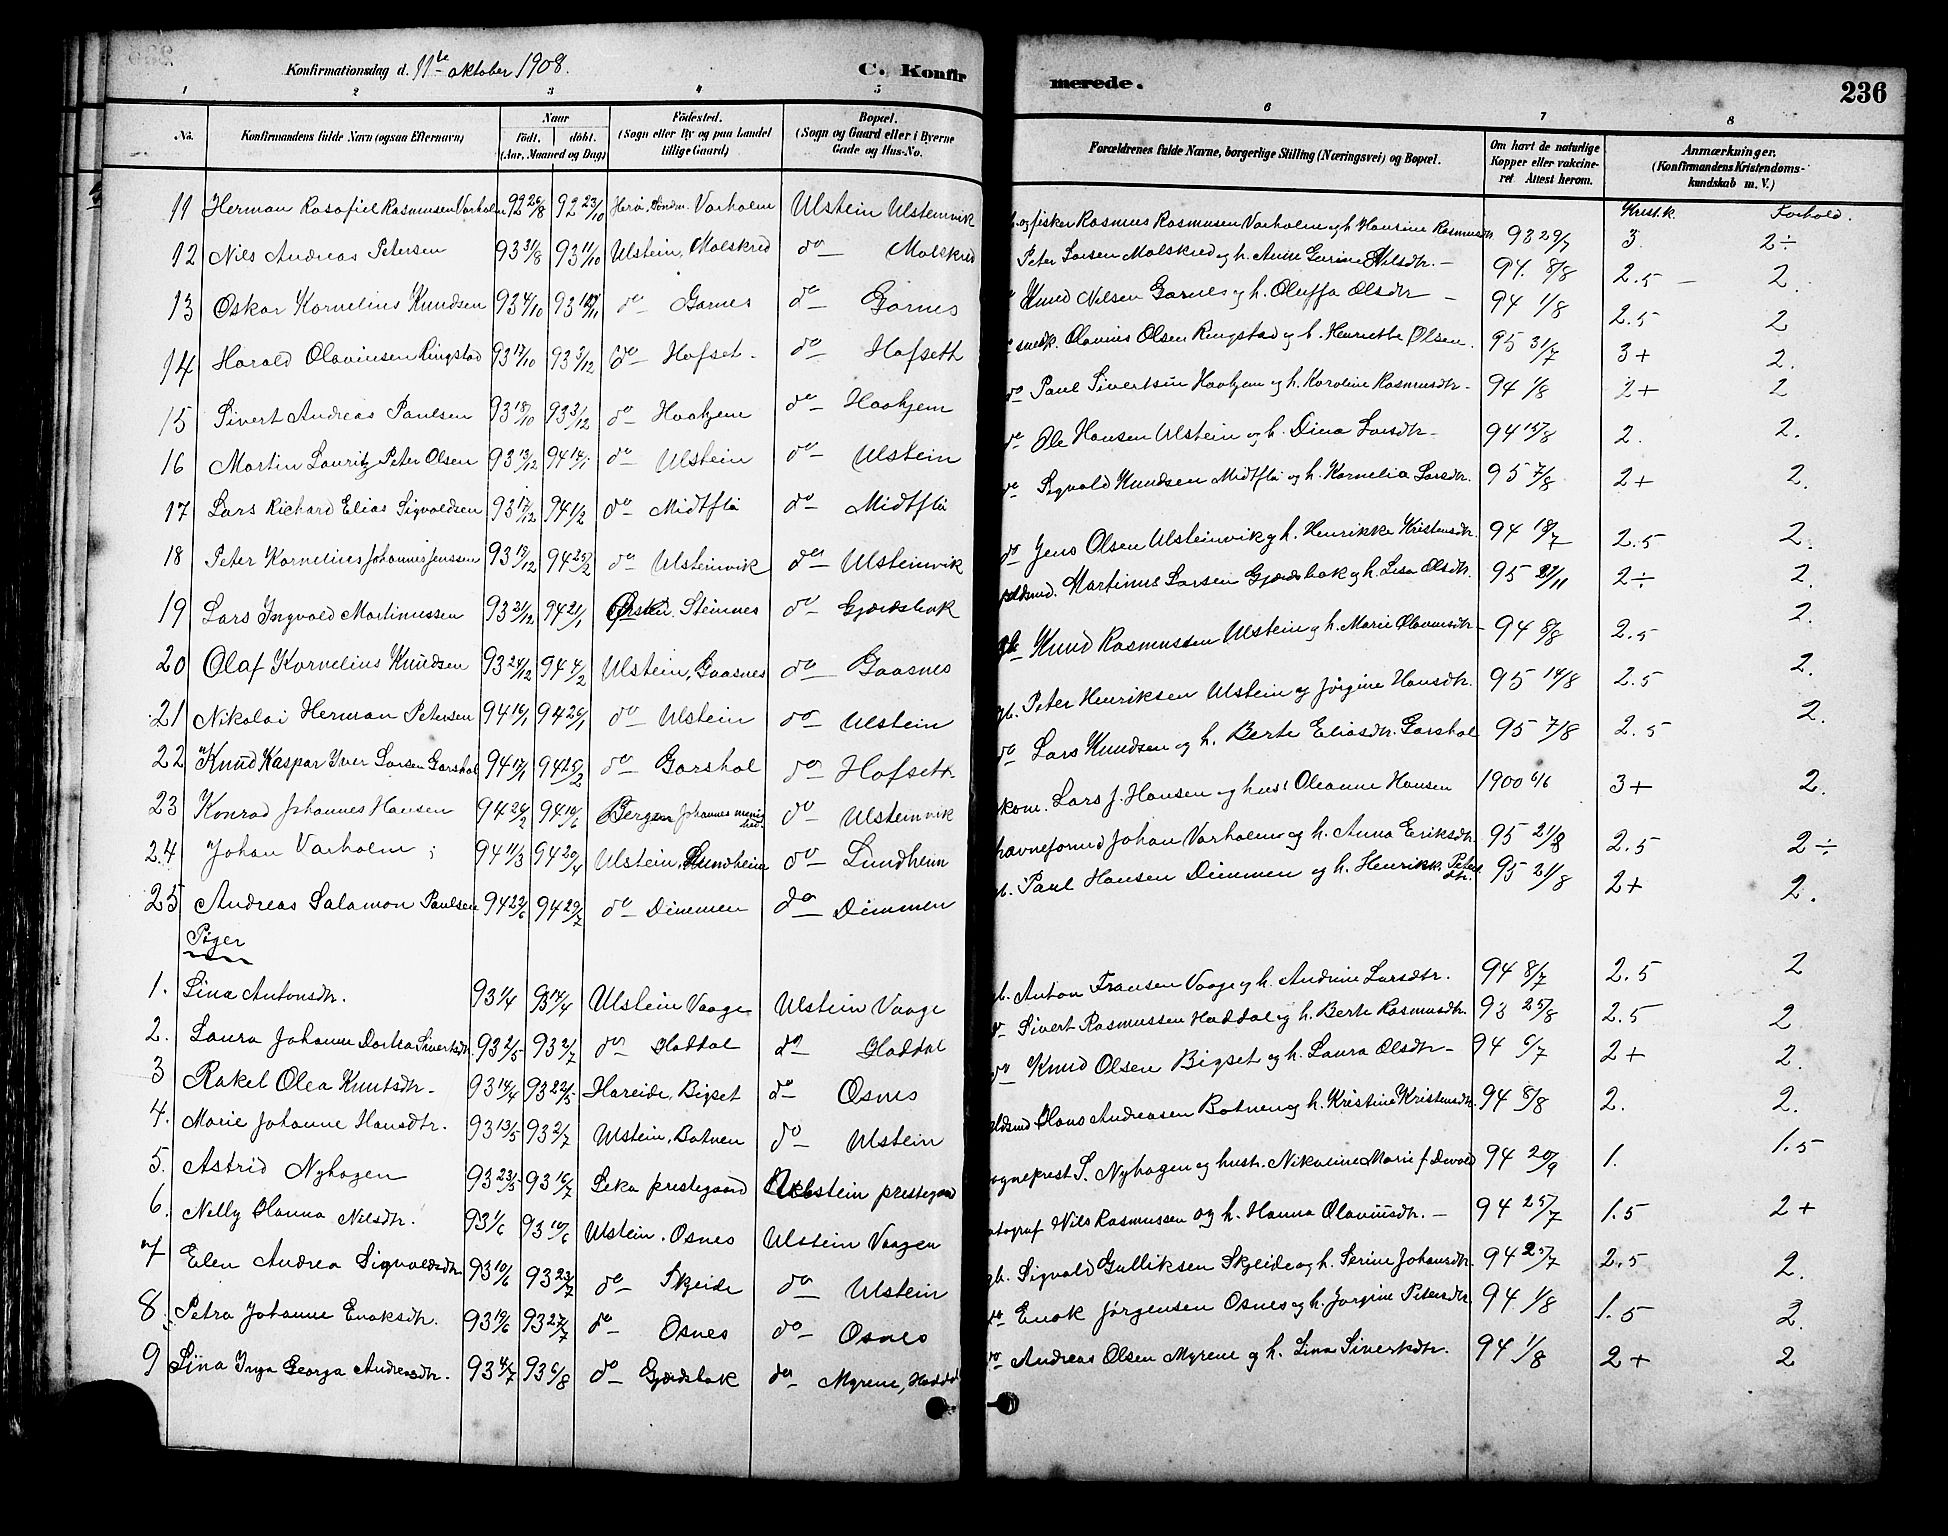 Konfirmationsdag d. 11te oktober 1908. C. Konfirmerede. 236
1 2 3 4 5 6 7 8
No. Konfirmandens fulde Navn (ogsaa Efternavn) Naar født, døbt. (Aar, Maaned og Dag) Fødested. (Sogn eller By og paa Landet tillige Gaard) Bopæl. (Sogn og Gaard eller i Byerne Gade og Hus-No. Forældrenes fulde Navne, borgerlige Stilling (Næringsvei) og Bopæl. Om havt de naturlige Kopper eller vakcineret Attest herom. Anmærkninger, (Konfirmandens Kristendomskundskab m. V.)
Krist.k. Forhold.
11 Herman Rasmussen Varholm 92 26/8 92 23/10 Herø, Varholm Ulstein Ulsteinvik og fisker Rasmus Rasmusen Varholm og h. Hansine Rasmusdtr. 98 29/7 3. 2÷
12 Nils Andreas Petersen 93 31/8 93 11/10 Ulstein, Molskred do Molskred Peter Larsen Molskred og h. Anne Nilsdtr. 94 8/8 2.5 2.
13 Oskar Kornelius Knudsen 93 4/10 93 do Garnes do Garnes Knud Nilsen Garnes og h. Oluffa Olsdtr 94 1/8 2.5 2
14 Harald Olavinsen Ringstad 93 17/10 93 3/12 do Hofset. do Hofseth snedk. Olavius Olsen Ringstad og h. Henriette Olsen. 95 31/7 3+ 2.
15 Sivert Andreas Paulsen 93 18/10 93 3/12 do Haahjem do Haahjem do Paul Sivertsen Haahjem og h. Karoline Rasmusdtr. 94 1/8 2+ 2
16 Martin Lauritz Peter Olsen 93 13/12 94 14/1 do Ulstein do Ulstein do Ole Hansen Ulstein og h. Dina Larsdtr 94 15/8 2. 2.
17 Lars Richard Elias Sigvaldsen 93 17/12 94 1/2 do Midtflø do Midtflø do Sigvald Knudsen Midtflø og h. Kornelia Larsdtr. 95 7/8 2+ 2.
18 Peter Kornelius Johannes Jenssen 93 17/12 94 25/2 do Ulsteinvik do Ulsteinvik do Jens Olsen Ulsteinvik og h. Henrikke Kristensdtr. 94 18/7 2.5 2.
19 Lars Ingvald Martinussen 93 21/12 94 21/1 Ørsten. Steinnes do Gjærdsbak Martinus Larsen Gjærdsbak og h. Lisa Olsdtr. 95 27/11 2÷ 2.
20 Olaf Kornelius Knudsen 93 24/12 94 4/2 Ulstein, Gaasnes do Gaasnes gb. Knud Rasmussen Ulstein og h. Marie Olavusdtr 94 8/8 2.5 2.
21 Nikolai Herman Petersen 94 16/1 94 26/1 do Ulstein do Ulstein gb. Peter Henriksen Ulstein og Jørgine Hansdtr. 95 14/8 2.5 2.
22 Knud Kaspar Iver Larsen Garshol 94 17/1 94 25/2 do Garshol do Hofseth do Lars Knudsen og h. Berte Eliasdtr. Garshol 95 7/8 2.5 2.
23 Konrad Johannes Hansen 94 24/2 94 10/6 Bergen Johannes menighed. do Ulsteinvik Lars J. Hansen og hust. Oleanne Hansen 1900 6/6 3+ 2.
24 Johan Varholm 94 11/3 94 20/4 Ulstein, Lundheim do Lundheim havneformd Johan Varholm og h. Anna Eriksdtr. 95 21/8 2.5 2÷
25 Andreas Salamon Paulsen 94 22/6 94 29/7 do Dimmen do Dimmen gb. Paul Hansen Dimmen og h. Henrikk. Petersdtr. 95 21/8 2+ 2.
Piger
1. Lina Antonsdtr. 93 1/4 93 17/4 Ulstein Vaage Ulstein Vaage gb. Anton Fransen Vaage og h. Andrine Larsdtr. 94 8/7 2.5 2
2. Laura Johanne Dortea Sivertsdtr. 93 2/5 93 2/7 do Haddal do Haddal do Sivert Rasmussen Haddal og h. Berte Rasmusdtr. 93 25/8 2.5 2
3 Rakel Olea Knutsdtr. 93 14/4 93 22/5 Hareide, Bigset do Osnes do Knud Olsen Bigset og h. Laura Olsdtr 94 6/7 2+ 2.
4. Marie Johanne Hansdtr. 93 13/5 93 2/7 Ulstein, Botnen do Ulstein Hans Andreasen Botnen og h. Kristine Kristensdtr. 94 8/8 2. 2.
5. Astrid Nyhagen 93 23/5 93 16/7 Leka prestegaard Ulstein prestegaard sogneprest S. Nyhagen og hustr. Nikoline Marie f. Devold 94 20/9 1. 1.5
6. Nelly Hanna Nilsdtr. 93 1/6 93 10/6 Ulstein. Osnes Ulstein Vaagen fotograf Nils Rasmussen og h. Hanna Olaviisdtr. 94 25/7 1.5 2+
7 Elen Andrea Sigvaldsdtr. 93 10/6 93 23/7 do Skeide do Ulstein gb. Sigvald Gulliksen Skjeide og h. Serine Johansdtr. 94 25/7 2.5 2.
8. Petra Johanne Enoksdtr. 93 19/6 93 27/7 do Osnes do Osnes do Enok Jørgensen Osnes og h. Jørgine Petersdtr. 94 1/8 1.5 2.
9 Lina Inga Georga Andreasdtr. 93 4/7 93 6/8 do Gjærdsbak do Myrene, Haddal do Andreas Olsen Myrene og h. Lina Sivertsdtr. 94 1/8 2+ 2